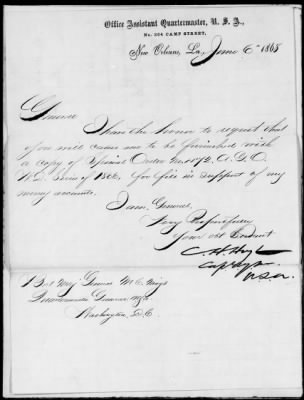 Office Assistant Quartermaster, U. S. A.,
No. 204 CAMP STREET,
New Orleans, La., June 6th 1868
General
I have the honor to request that
you will cause me to be furnished with
a copy of Special Order No. 172, A.G.O.
series of 1866, for file in support of my
money accounts.
I am, General,
Very Respectfully
Your obt Servant
Capt
U.S.A.
Bvt Maj General M. C. Meigs
Quartermaster General
Washington, D.C.